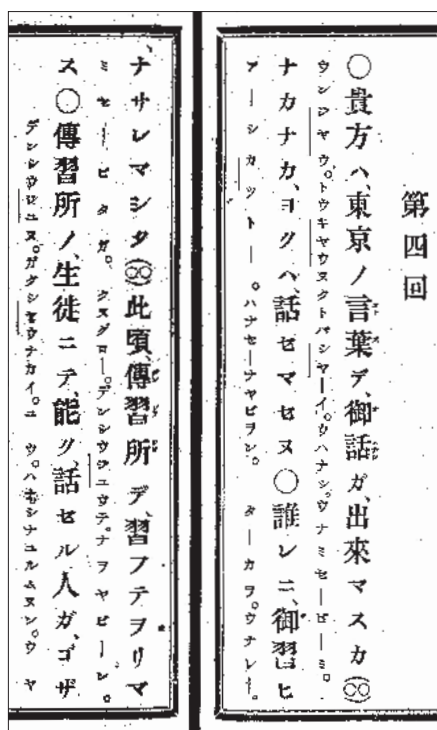 第四回
○貴方ハ、東京ノ言葉デ、御話ガ、出來マスカ∞
ウンジヤウ。トウキヤウヌクトバシヤーイ。ウハナシ。ウナミセービーミ。
ナカナカ、ヨクハ、話セマセヌ○誰レニ、御習ヒ
アーシカットー。ハナセーナヤビラン。ターカラ。ウナレー。
ナサレマシタ∞此頃、傳習所デ、習フテヲリマ
ミセービタガ。クヌグロー。デンシウジユウテ。ナラヤビーン。
ス○傳習所ノ、生徒ニテ、能ク、話セル人ガ、ゴザ
デンシウジユヌ。ガクシヤウナカイ。ユウ。ハナシナユルムヌン。ウヤ